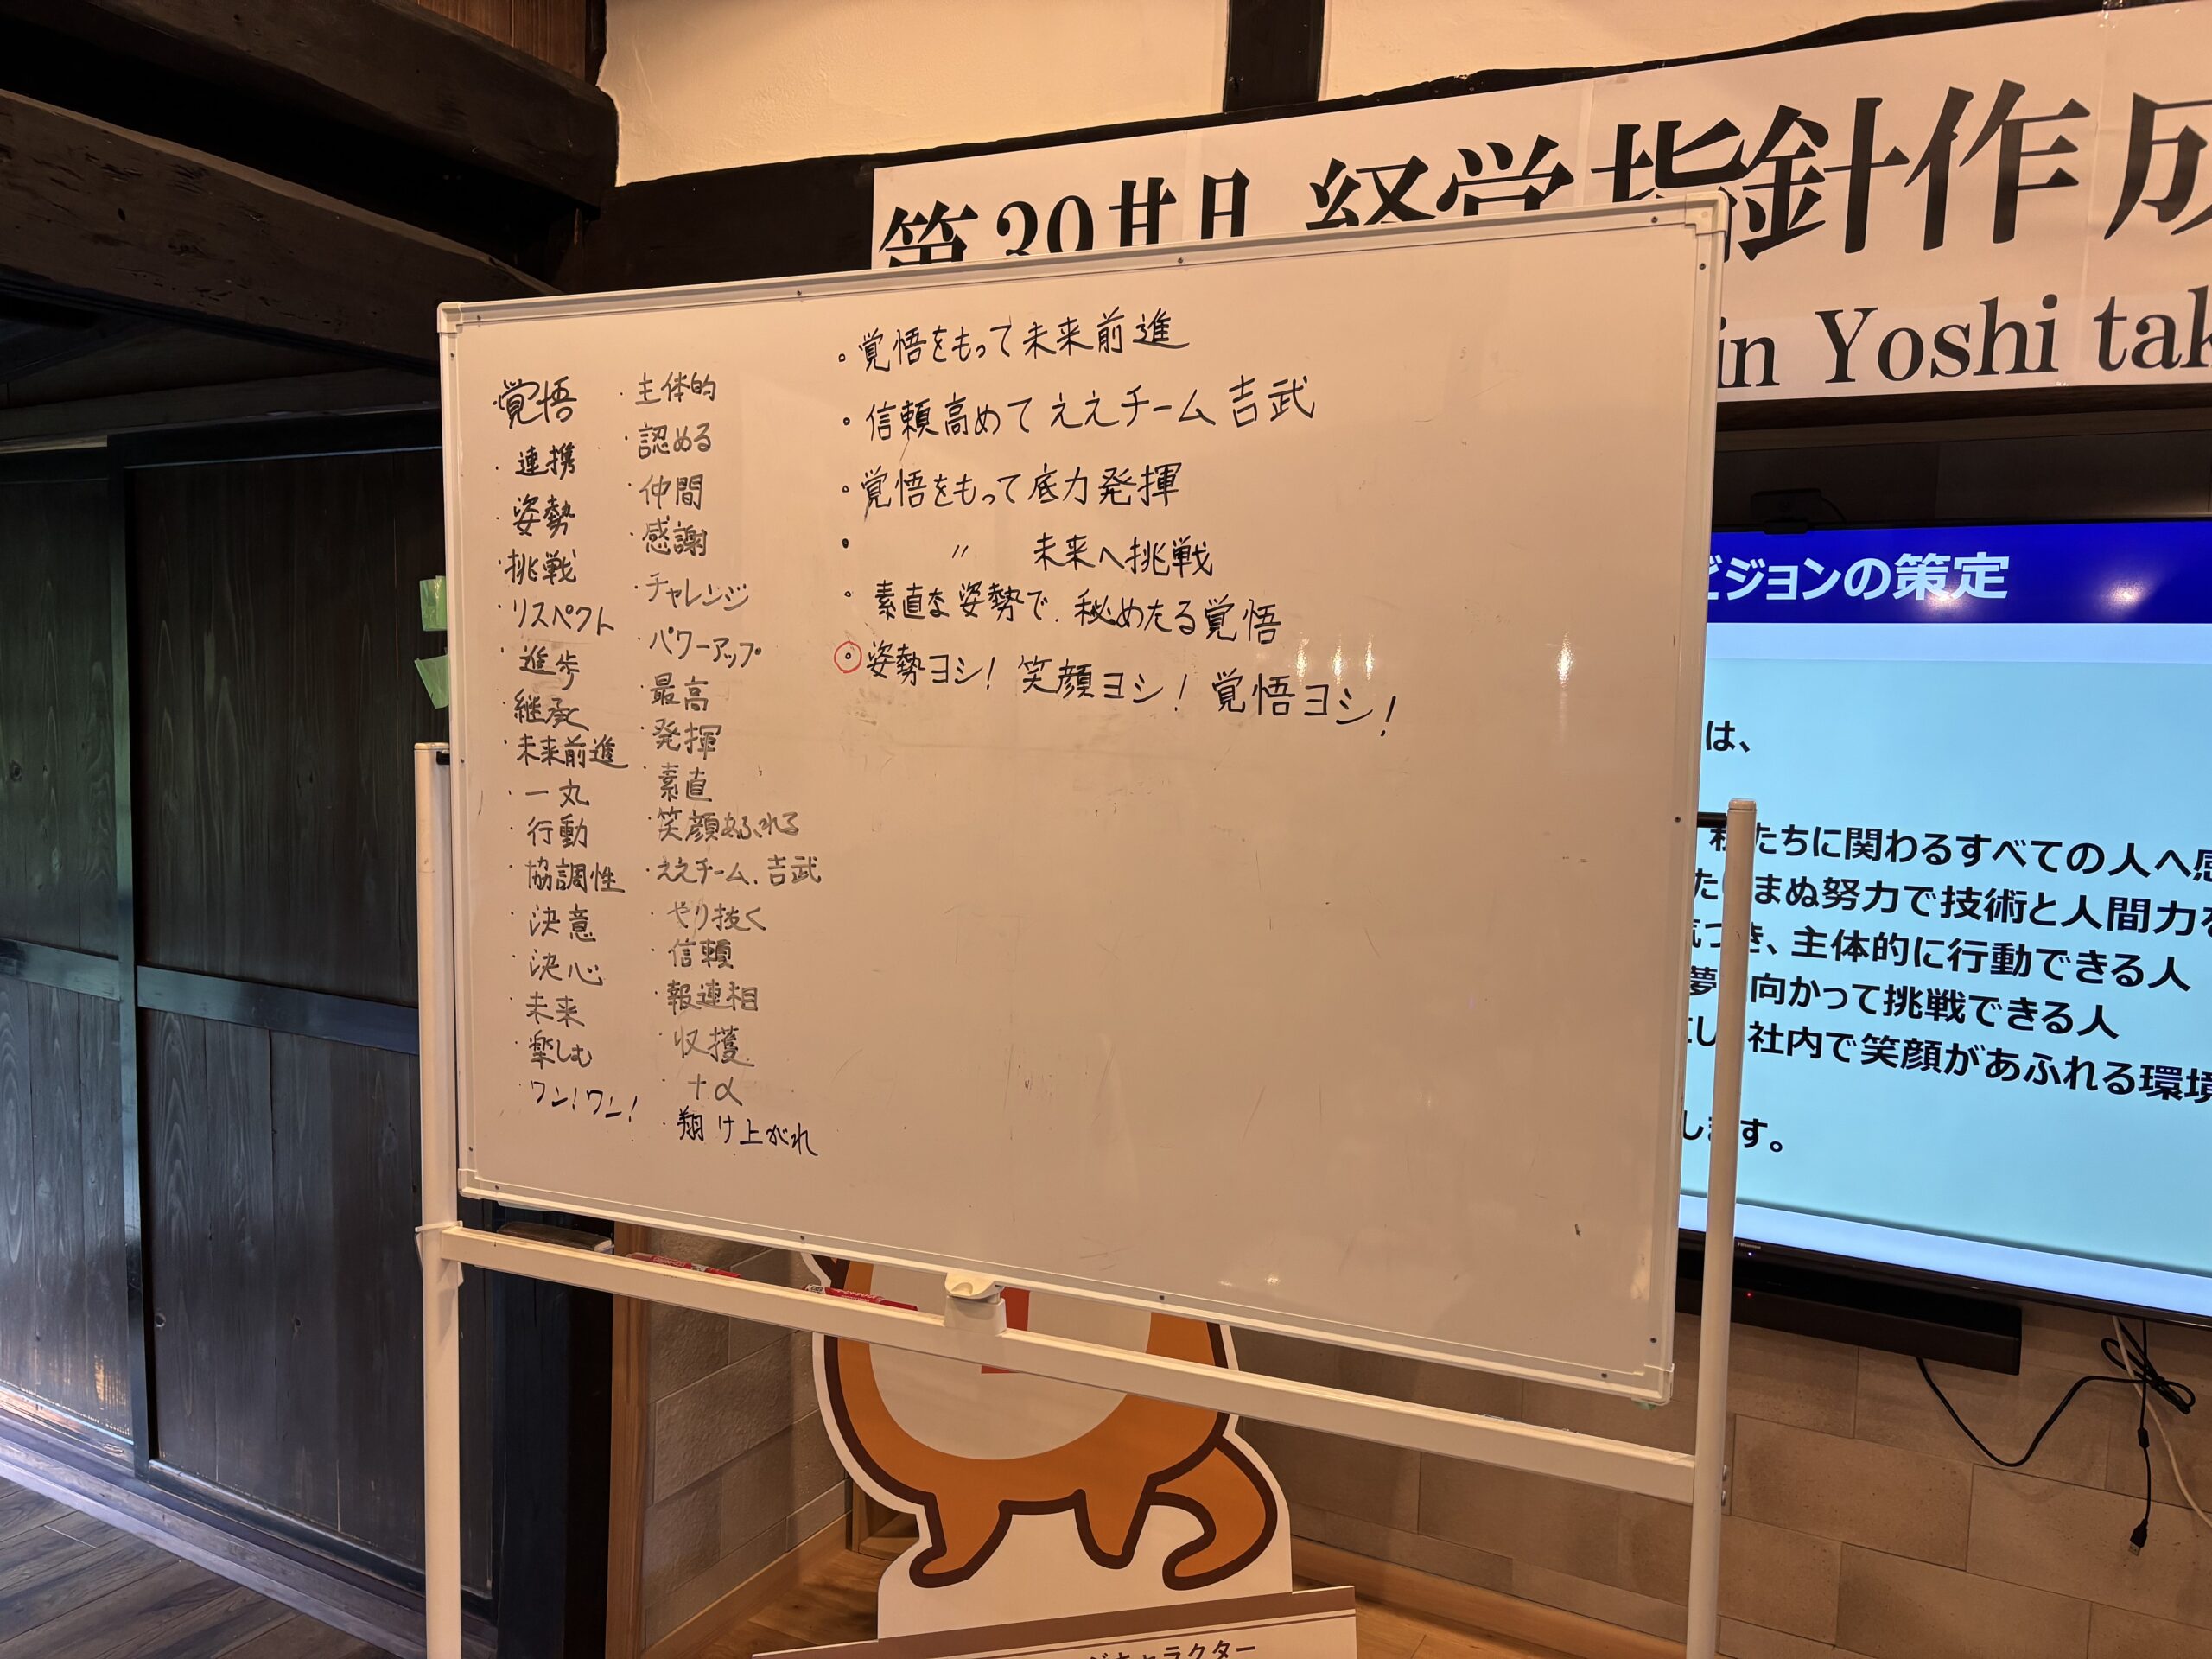 第30期 経営指針作成
in Yoshi tak
・覚悟
・連携
・姿勢
・挑戦
・リスペクト
・進歩
・継承
・未来前進
・一丸
・行動
・協調性
・決意
・決心
・未来
・楽しむ
・ワン!ワン!
・主体的
・認める
・仲間
・感謝
・チャレンジ
・パワーアップ
・最高
・発揮
・素直
・笑顔あふれる
・ええチーム.吉武
・やり抜く
・信頼
・報連相
・収獲
・+α
・翔け上がれ
・覚悟をもって未来前進
・信頼高めてええチーム吉武
・覚悟をもって底力発揮
・〃 未来へ挑戦
・素直な姿勢で.秘めたる覚悟
・姿勢ヨシ! 笑顔ヨシ! 覚悟ヨシ!
ビジョンの策定
は、
私たちに関わるすべての人へ感
まぬ努力で技術と人間力を
づき、主体的に行動できる人
夢 向かって挑戦できる人
し 社内で笑顔があふれる環境
します。
Hisense
キャラクター